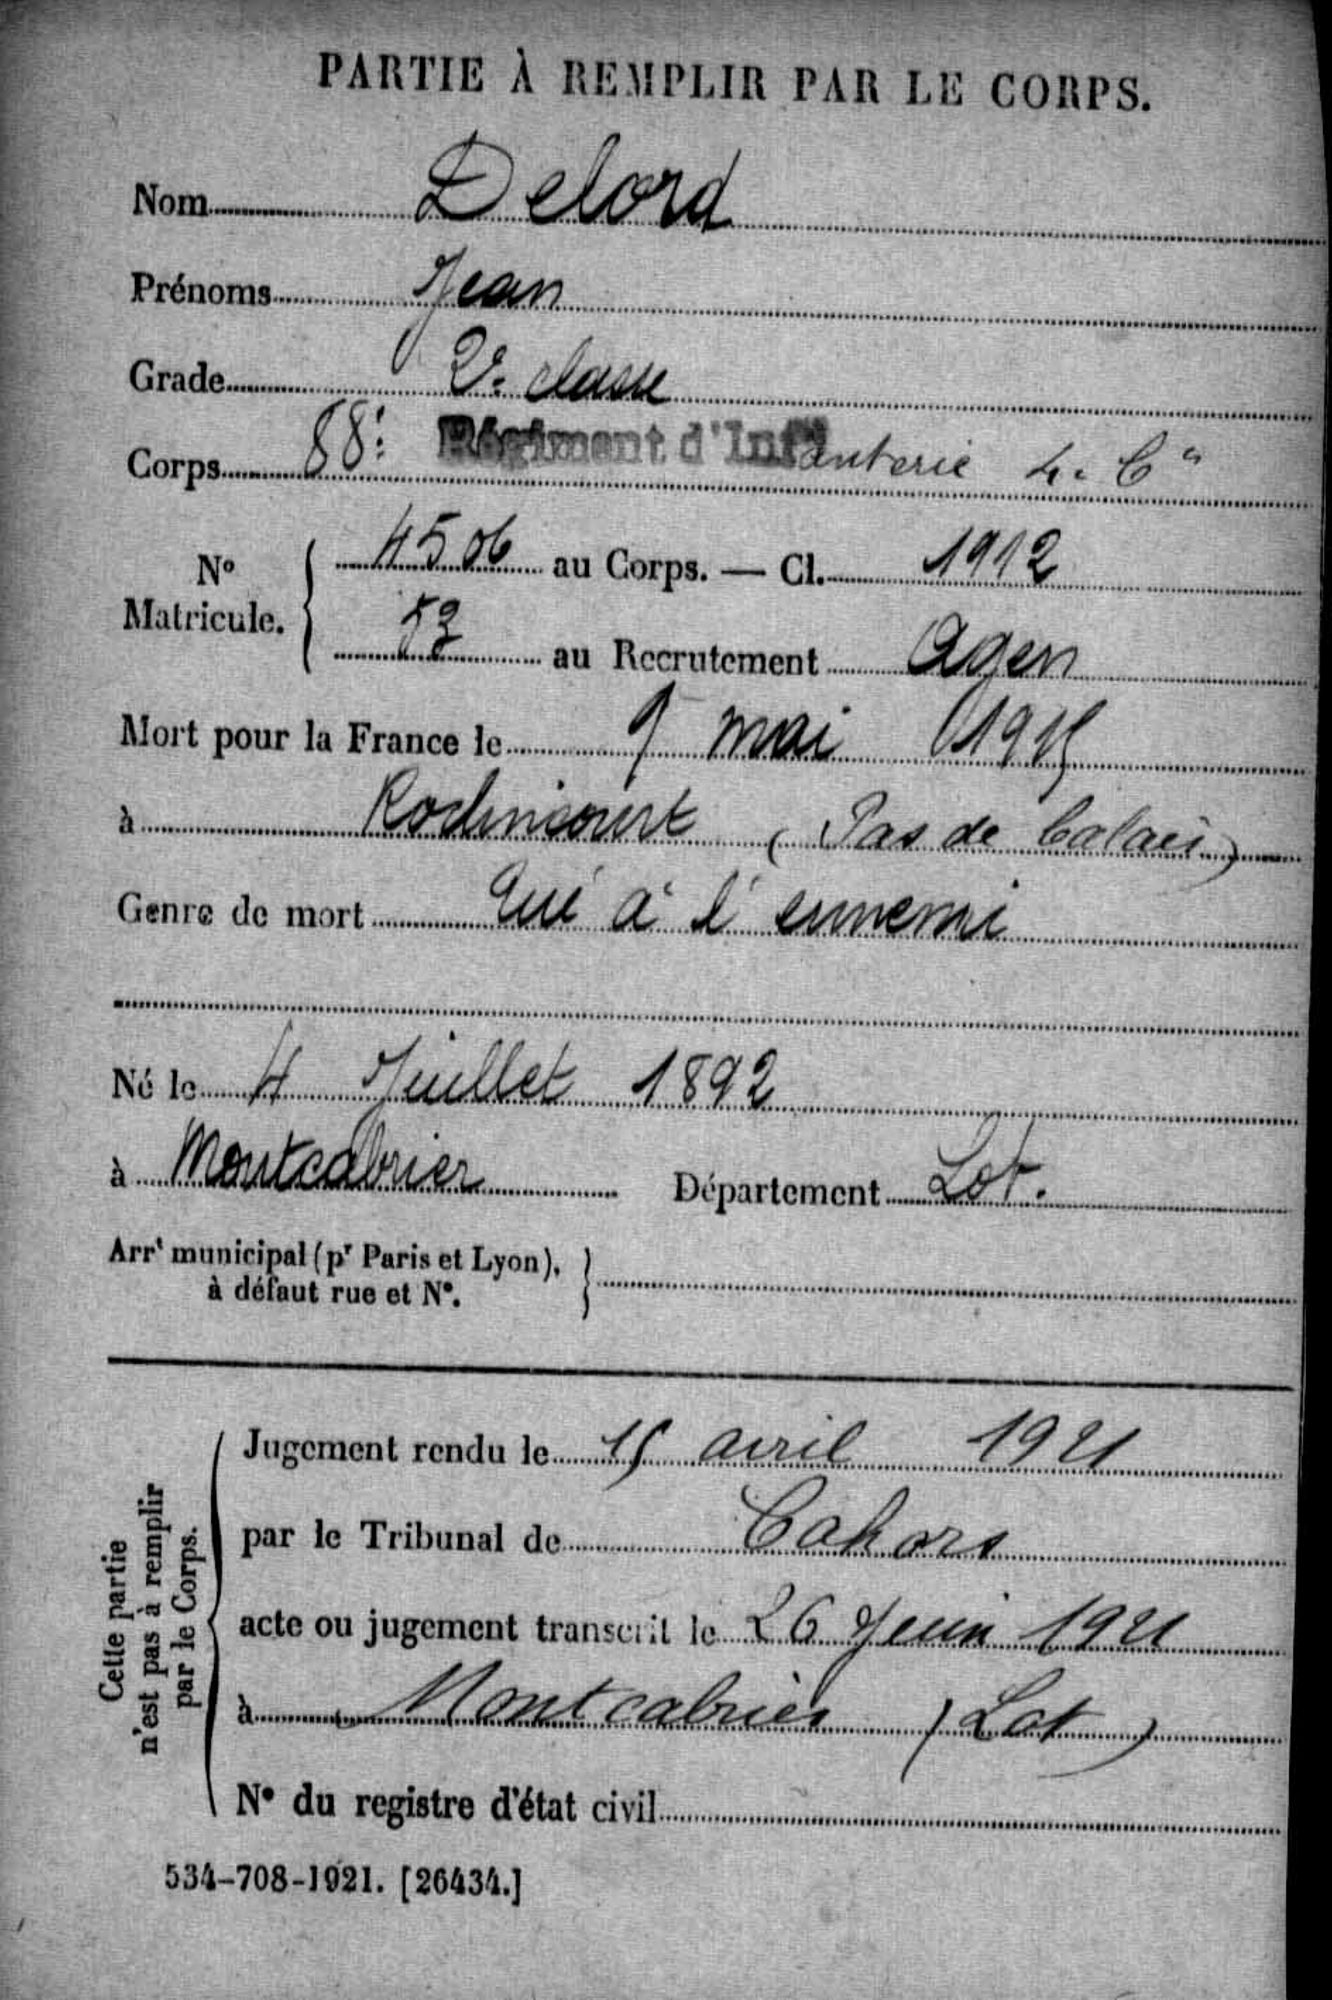 PARTIE À REMPLIR PAR LE CORPS.
Nom Delord
Prénoms Jean
Grade 2e classe
Corps 88e Régiment d'Infanterie 4e Cie
No Matricule. 4506 au Corps. — Cl. 1912
53 au Recrutement Agen
Mort pour la France le 9 mai 1915
à Roclincourt (Pas de Calais)
Genre de mort Tué à l'ennemi
Né le 4 Juillet 1892
à Montcabrier Département Lot.
Arrt municipal (pr Paris et Lyon),
à défaut rue et N°.
Cette partie
n'est pas à remplir
par le Corps.
Jugement rendu le 15 avril 1921
par le Tribunal de Cahors
acte ou jugement transcrit le 26 Juin 1921
à Montcabrier (Lot)
N° du registre d'état civil
534-708-1921. [26434.]